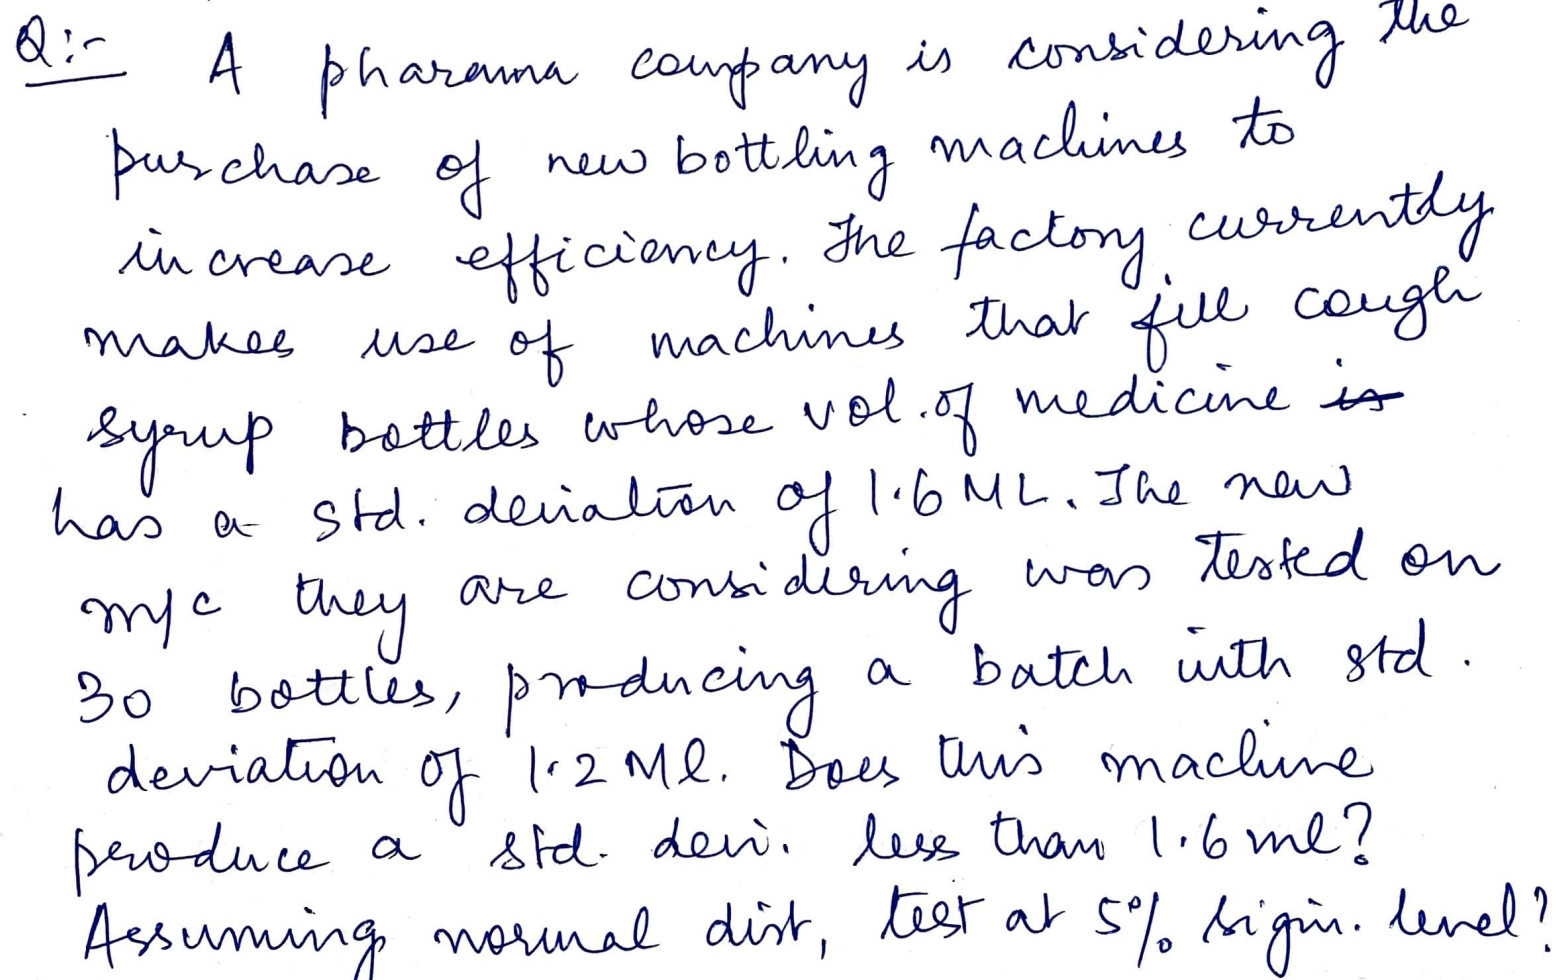 Q:- A pharama company is considering the
purchase of new bottling machines to
increase efficiency. The factory currently
makes use of machines that fill cough
syrup bottles whose vol. of medicine is
has a std. deviation of 1.6 ML. The new
m/c they are considering was tested on
30 bottles, producing a batch with std.
deviation of 1.2 Ml. Does this machine
produce a std. devi. less than 1.6 ml?
Assuming normal dist, test at 5% signi. level?